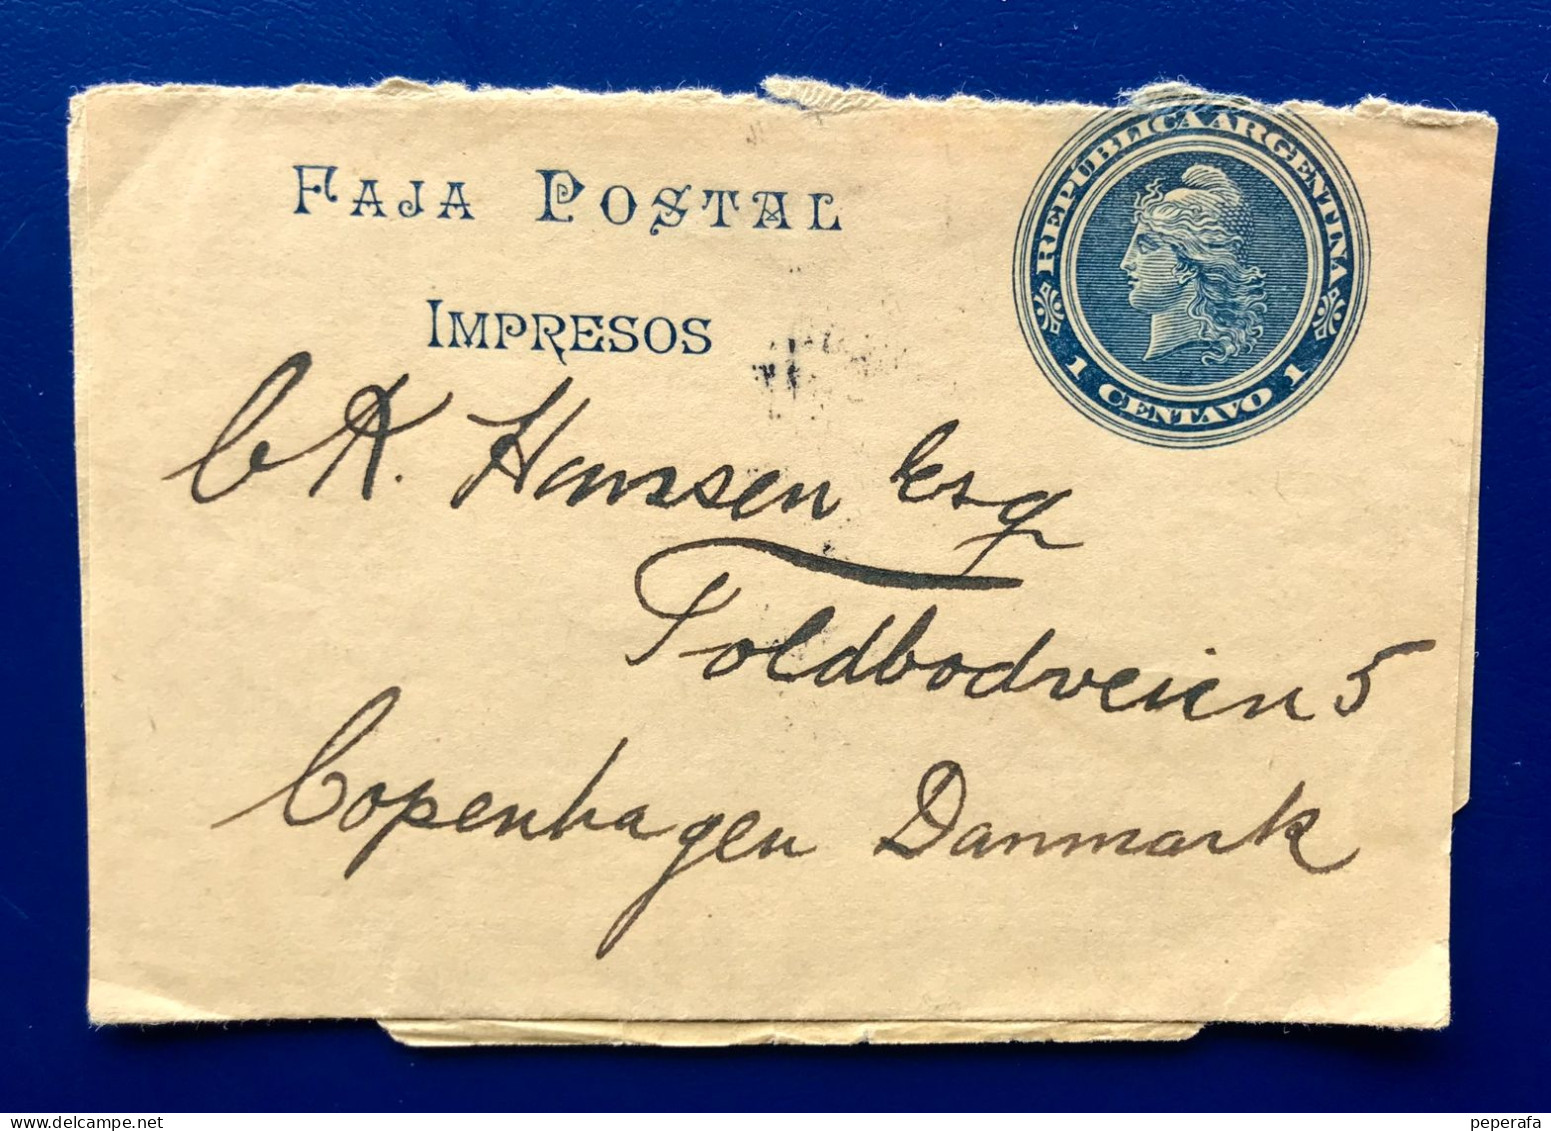 FAJA POSTAL
IMPRESOS
REPÚBLICA ARGENTINA
1 CENTAVO 1
C A. Hansen Esq
Toldbodveien 5
Copenhagen Danmark
www.delcampe.net
peperafa